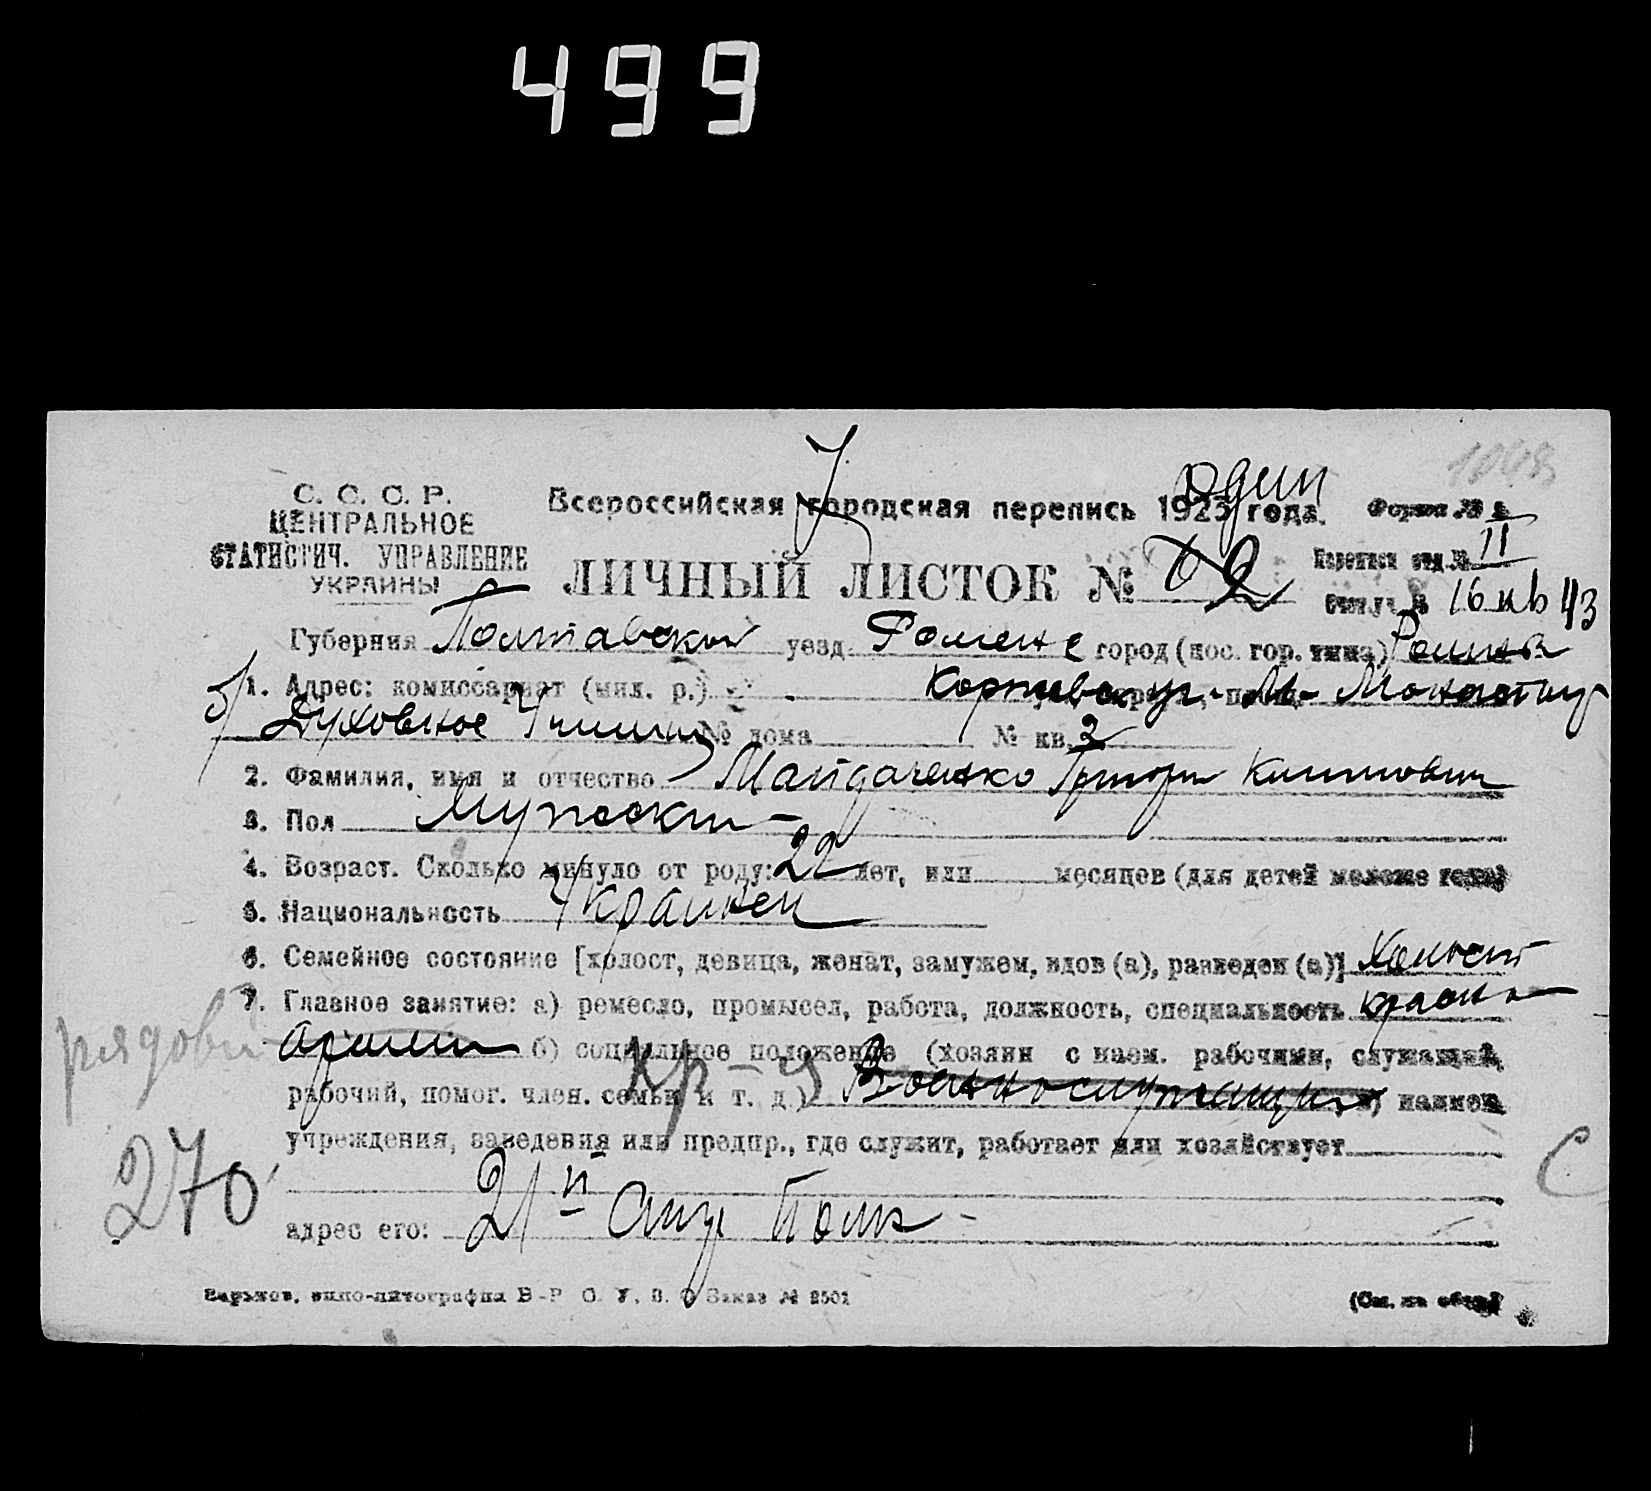 499
1048
один
С. С. С. Р.
ЦЕНТРАЛЬНОЕ
СТАТИСТИЧ. УПРАВЛЕНИЕ
УКРАИНЫ
Всероссийская городская перепись 1923 года.
Форма № 2
ЛИЧНЫЙ ЛИСТОК № 2
Переписн отд. № II
Счетн. уч. № 16 кв 43
Губерния Полтавская уезд Ромене город (пос. гор. типа) Ромны
1. Адрес: комиссариат (мил. р.)
Духовное № дома № кв. 2
2. Фамилия, имя и отчество Майдаченко Григори
3. Пол Мужеский
4. Возраст. Сколько минуло от роду: 22 лет, или месяцев (для детей моложе года)
5. Национальность Украинец
6. Семейное состояние [холост, девица, женат, замужем, вдов (а), разведен (а)] Холост
7. Главное занятие: а) ремесло, промысел, работа, должность, специальность красно
рядовой
армеец б) социальное положение (хозяин с наем. рабочими, служащий,
рабочий, помог. член. семьи и т. д.) Военнослужащий в) наимен
кр-ц
учреждения, заведения или предпр., где служит, работает или хозяйствует
270
С
адрес его: 21й Полк
Харьков, типо-литография В-Р Заказ № 2501
(См. на обор.)